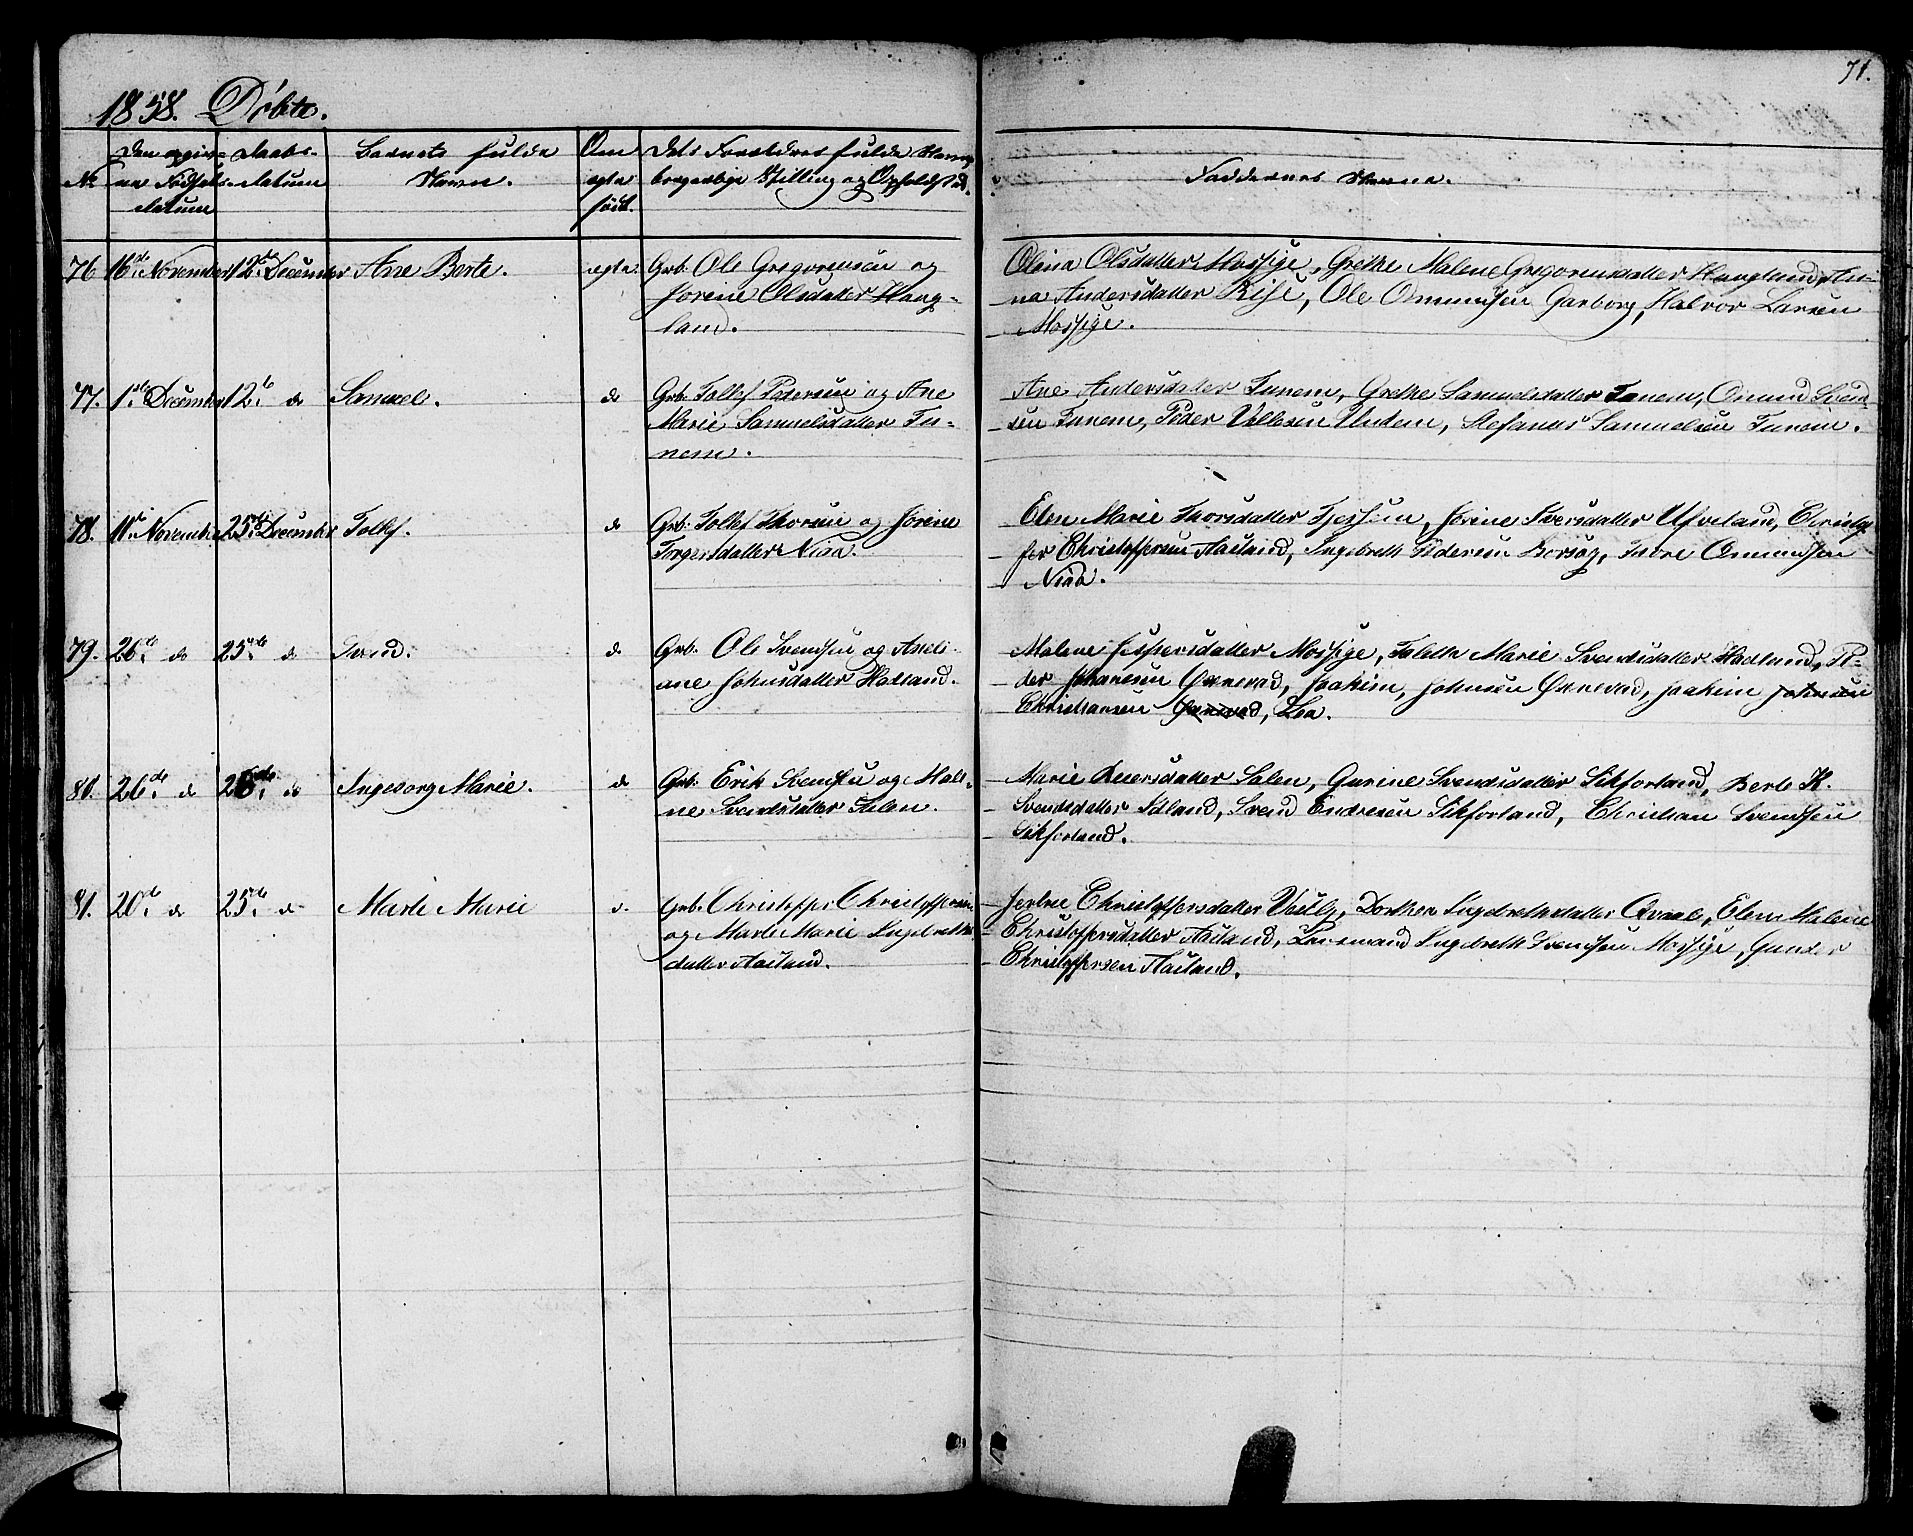 71.
1858. Döbte.
No
Den opgivne Födsels-datum
Daabs-datum
Barnets fulde Navn.
Om ægte født.
Dets Forældres fulde Navn borgerlige Stilling og Opholdsted.
Faddernes Navne.
76 16de November 12te December Ane Berte. ægte. Grb. Ole Gregoriussen og
Jorine Olsdatter Haag-
land.
Olina Olsdatter Mossige, Grethe Malene Gregoriusdatter Haagland,
Andersdatter Rise, Ole Ommundsen Garborg, Halvor Larsen
Mossige.
77. 1ste December 12te do Samuel. do Grb. Tollef Pedersen og Ane
Marie Samuelsdatter Tu-
nem.
Ane Andersdatter Tunem, Grethe Samuelsdatter Tunem, Omund Svend-
sen Tunem, Peder Undem, Stefanus Samuelsen Tunem.
78. 11te November 25de December Tollef. do Grb. Tollef Thorsen og Jorine
Torgersdatter Niaa.
Elen Marie Thorsdatter Jorine Iversdatter Ufveland, Christof-
fer Christoffersen Aasland, Ingebreth Pedersen Tore Omundsen
Niaa.
79. 26de do 25de do Svend. do Grb. Ole Svendsen og Aneli-
ane Johnsdatter Hadland.
Malene Jespersdatter Mossige, Taletta Marie Svendsdatter Hadland, Pe-
der Johansen Joakim, Johnsen Joakim Johnsen
Christiansen Lea.
80. 26de do do Ingeborg Marie. do Grb. Erik Svendsen og Male-
ne Svendsdatter Salen.
Marie Salen, Gurine Svendsdatter Sikforland, Berte K.
Svendsdatter Svend Endresen Sikforland, Christian Svendsen
Sikforland.
81. 20de do 25de do Marte Marie d. Grb. Christoffer Christoffersen
og Marte Marie Ingebreths-
datter Aasland.
Christoffersdatter Dorthea Ingebrethsdatter Elen Malene
Christoffersdatter Aasland, Ingebreth Svendsen Mossige, Gunder
Christoffersen Aasland.